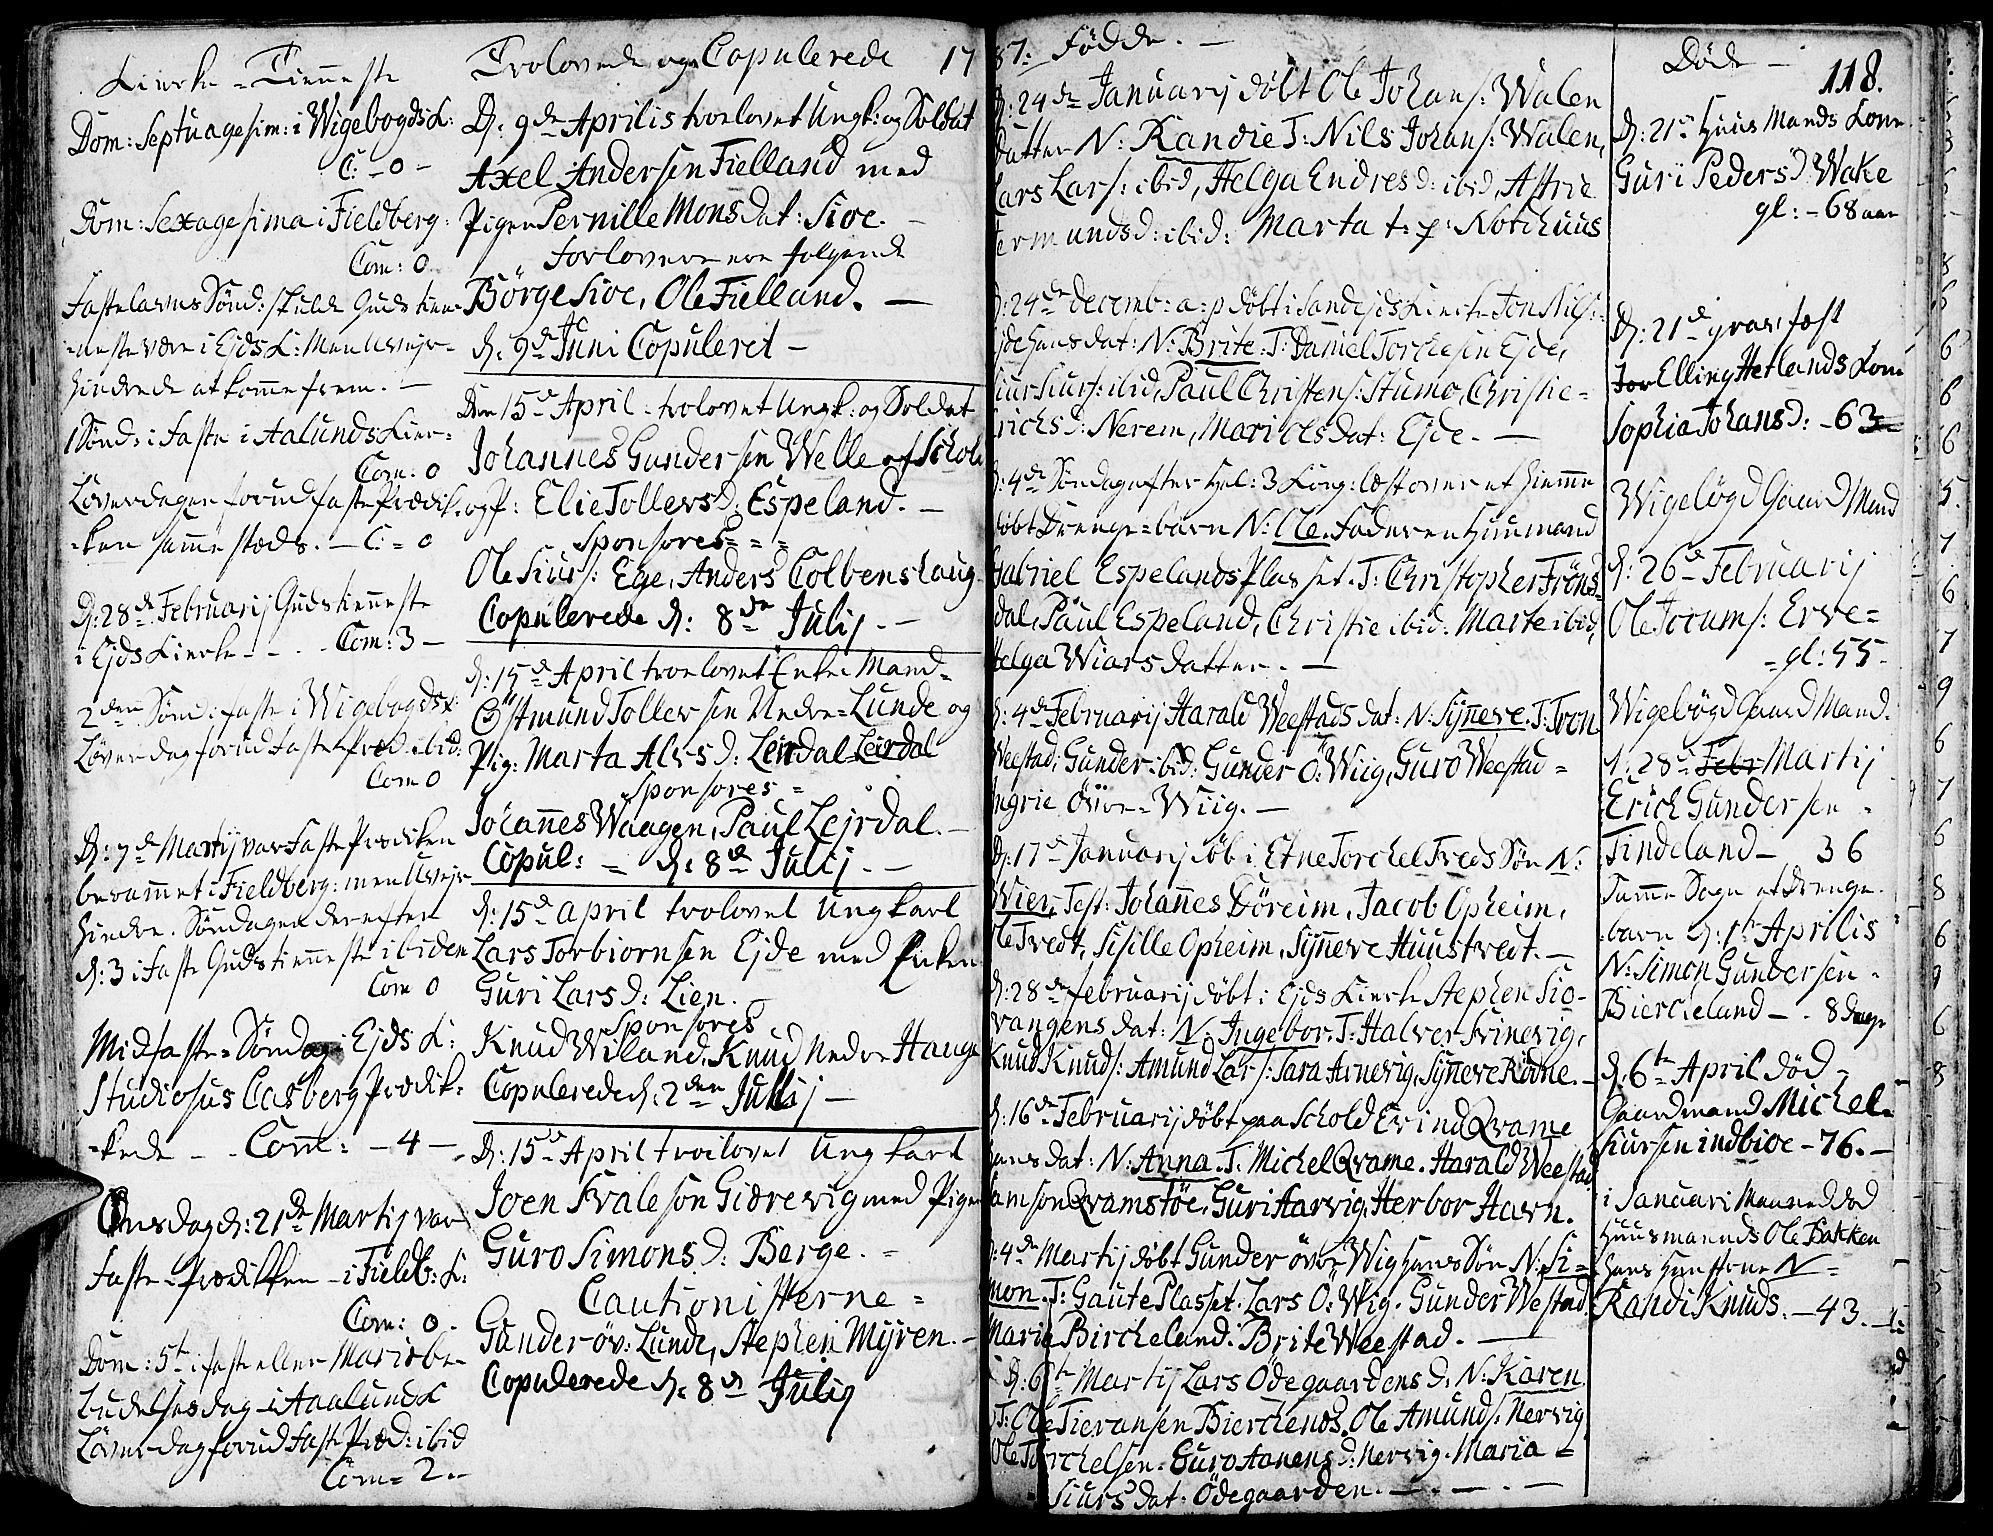 Kierke-Tienneste
Dom: Septuagesim: i Wigebøgds K:
C: - 0 -
Dom: Sexagesima i Fieldberg:
Com: 0
Fastelavns Sønd: skulde Guds tien-
-neste være i Ejds K: Men Uvejr-
hindrede at komme frem. -
1 Sønd: i Faste i Aalunds Kier-
Com: 0
Løverdagen forud faste Prædik-
-ken samme steds. - C: = 0
D: 28de Februarij Gudstienneste
i Ejds Kierke - - . - Com: 3 -
2den Sønd: i faste i Wigebøgds K:
Løverdag forud Faste Præd: ibid:
Com 0
D: 7de Martij var Faste Prædiken
berammet i Fieldberg: men Uvejr
hindre. Søndagen derefter
d: 3 i Faste Gudstienneste ibidem
Com 0
Midfaste-Søndag i Ejds K:
Studiosus Casberg Prædik-
-kede - - Com: - 4 -
Onsdag d: 21de Martij var
Faste-Prædikken - i Fieldb: K:
Com: 0 -
Dom: 5te i faste eller Mariæ be-
budelses dag i Aalund K
Løverdag forud Faste Præd: ibid
Com = 2. -
Trolovede og Copulerede 17
D: 9de Aprilis trolovet Ungk: og Soldat
Axel Andersen Fielland med
Pigen Pernille Monsdat: Sioe. -
Forlovere ere følgende
Börge Sioe, Ole Fielland. -
d. 9de Juni Copuleret -
Den 15de April trolovet Ungk: og Soldat
Johannes Gundersen Welle af Schold
og P: Elie Tollers d: Espeland. -
Sponsores = = =
Ole Siurs: Ege, Anders Colbenslaug
Copulerede d: 8de Julij. -
d: 15de April troelovet Enke Mand-
Östmund Tollersen Nedre-Lunde og
Pig: Marta Alvs d: Leirdal
Sponsores =
Johannes Waagen, Paul Lejrdal. -
Copul: = d: 8de Julij. -
d: 15de April trolovet Ungkarl
Lars Torbiornsen Ejde med Enken
Guri Lars d: Lien.
Sponsores
Knud Wiland, Knud Nedre Hauge
Copulerede d. 2den Julij -
D: 15de April troelovet Ungkarl
Joen Svalesøn Giærevig med Pigen
Guro Simons d: Berge. =
Cautionisterne =
Gunder öv: Lunde, Stephen Myren. -
Copulerede d: 8de Julij
87: Fødde. -
D: 24de Januarij døbt Ole Johans: Walen
datter N: Randie T: Nils Johans: Walen,
Lars Lars: ibid, Helga Endres d: ibid, Astrie
Termundsd: ibid: Marta t: p: Notehuus
d: 24de Decemb: a: p døbt i Sandejds Kierke Jon Nils:
Ejde hans dat: N: Brite. T: Daniel Torchesen Ejde,
Siur Siurs: ibid, Paul Christens: Stumo, Christie-
Erichs d: Nerem, Mari Ols dat: Ejde. -
d: 4de Søndag efter Hel: 3 Kong: læst over et hiemme
døbt Drenge-barn N: Ole. Faderen Huusmand
Gabriel Espelands Plasset. T: Christopher Fröns-
dal, Paul Espeland, Christie ibid. Marte ibid,
Helga Wiars datter. -
d: 4de Februarij Harald Weestads dat: N: Synnere. T: Tron
Weestad, Gunder ibid: Gunder Ö: Wiig, Guro Weestad =
Ingrie Øvre-Wiig. -
D: 17de Januarij døb i Etne Torchel Treds Søn N:
Wier, Test: Johannes Döreim, Jacob Opheim,
Ole Tredt, Sisille Opheim, Synnere Huustredt. -
D: 28de februarij døbt i Ejds Kierke Stephen Sio-
vangens dat: N: Ingebor. T: Halver Svinevig,
Knud Knuds: Amund Lars: Sara Arnevig, Synnere Rödne. -
d: 16de Februarij døbt paa Schold Erind Qvame
hans dat: N: Anna. T: Michel Qvame. Harald Weestad
Samson Qvamstöe, Guri Harvig, Herbor Havn.
d: 4de Martij døbt Gunder övre Wig hans Søn N: Si-
mon. T: Gaute Plasset. Lars Ö: Wig. Gunder Westad
Marie Bircheland. Brite Weestad. -
d: 6te Martij Lars Ödegaardens d: N: Karen
T: Ole Tieransen Bierchends. Ole Amunds: Nervig
Ole Torchelsen. Guro Aanensd: Nervig. Maria =
Siursdat. Ödegaarden. - . - . -
Døde - 118.
D: 21de Huus Mands Kone
Guri Pedersd: Wake
gl: - 68 aar
D: 21de grav: fæst
for Elling Hetlands Kone
Sophia Johansd: - 63
Wigebøgd Gaard Mand
d: 26de Februarij
Ole Jocums: Erve=
= gl: 55.
Wigebøgd Gaard Mand.
d. 28de Febr Martij
Erich Gundersen =
Tindeland - 36
Samme Sogn et Drenge-
barn d: 1te Aprilis
N: Simon Gundersen -
Biercheland - - 8 dage
d. 6te April Død =
Gaardmand Michel
Siursen indbioe - 76. -
i Januari Maaned død
Huusmanнds Ole Bakken
hans Hustrue N =
Randi Knuds. - 43. -